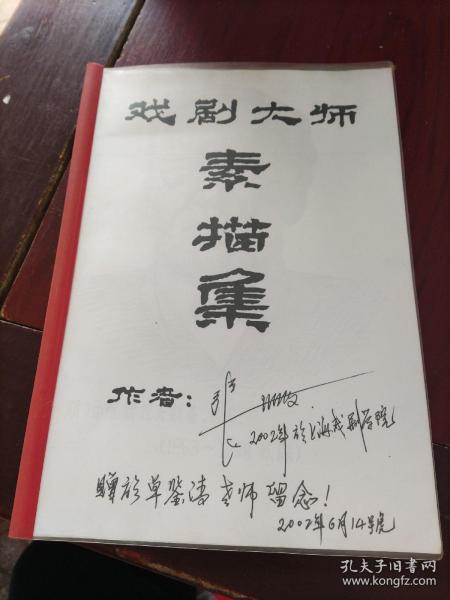 戏剧大师
素
描
集
作者：
2002年於上海戏剧学院
赠於单鉴涛老师留念！
2002年6月14号
孔夫子旧书网
www.kongfz.com